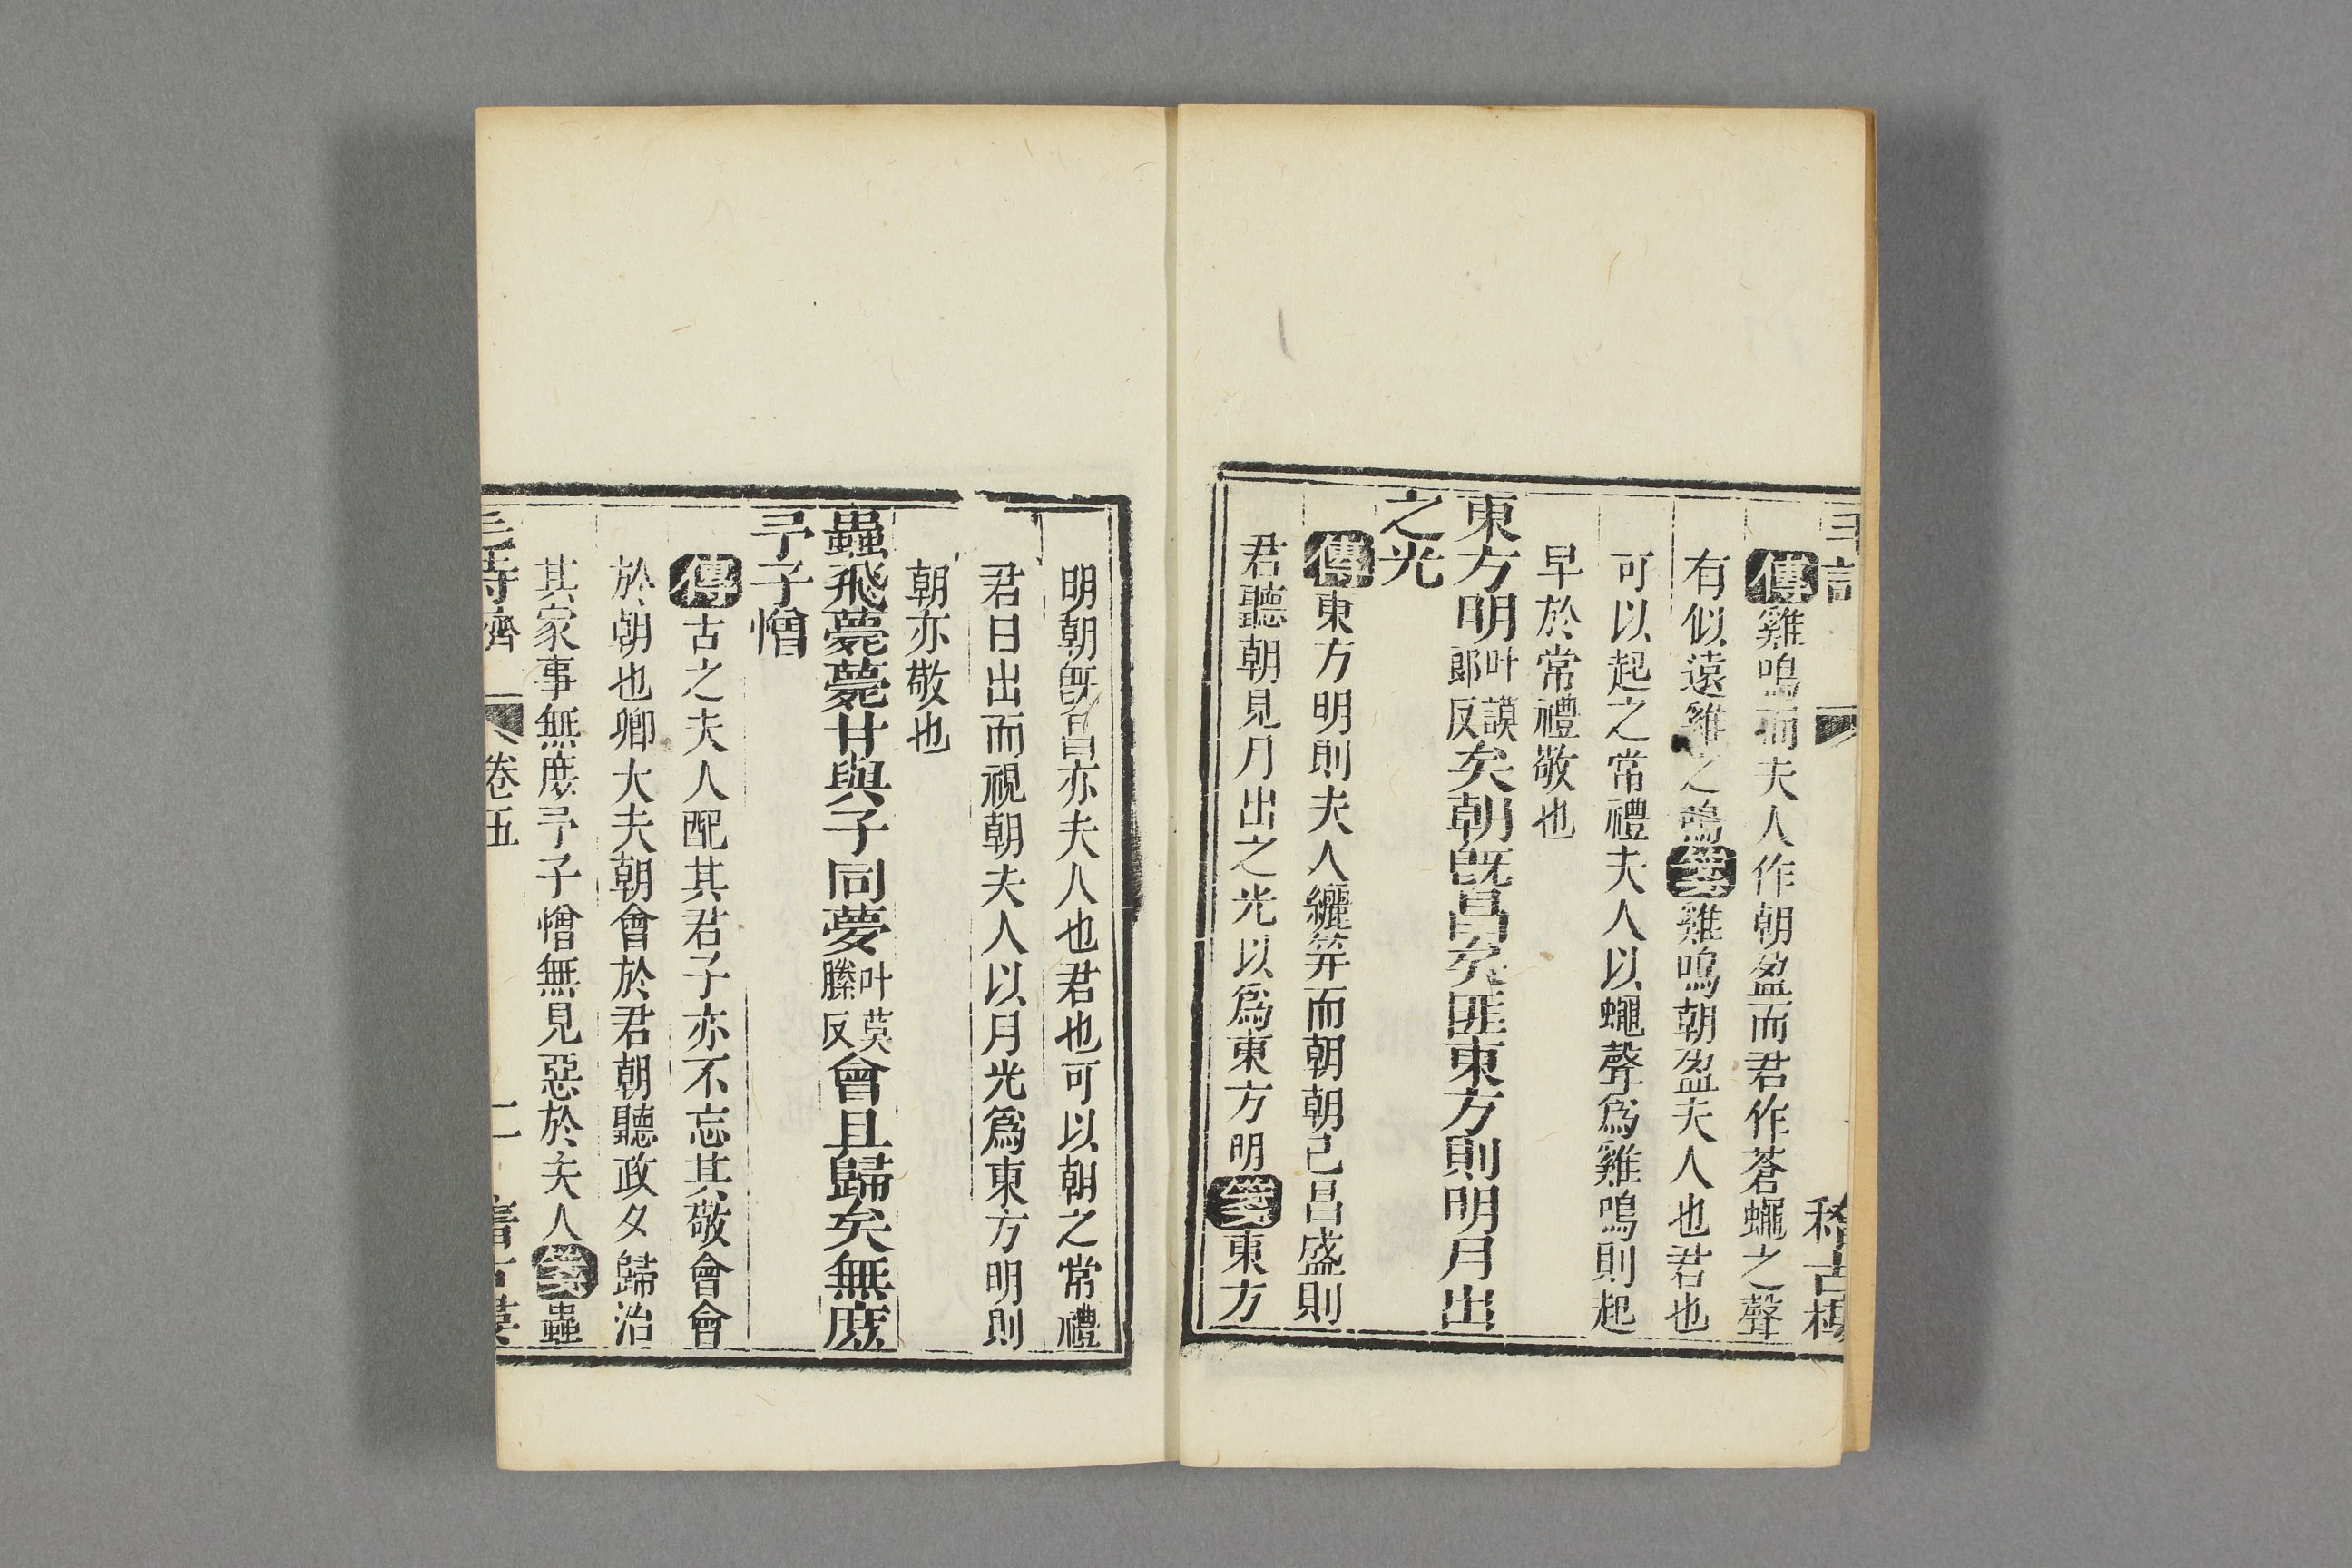 傳雞鳴而夫人作朝盈而君作蒼蠅之聲
有似遠雞之鳴箋雞鳴朝盈夫人也君也
可以起之常禮夫人以蠅聲爲雞鳴則起
早於常禮敬也
東方明叶謨郞反矣朝旣昌矣匪東方則明月出
之光
傳東方明則夫人纚笄而朝朝已昌盛則
君聽朝見月出之光以爲東方明箋東方
明朝旣昌亦夫人也君也可以朝之常禮
君日出而視朝夫人以月光爲東方明則
朝亦敬也
蟲飛薨薨甘與子同夢叶莫縢反會且歸矣無庶
予子憎
傳古之夫人配其君子亦不忘其敬會會
於朝也卿大夫朝會於君朝聽政夕歸治
其家事無庶予子憎無見惡於夫人箋蟲
毛詩齊 卷五 二